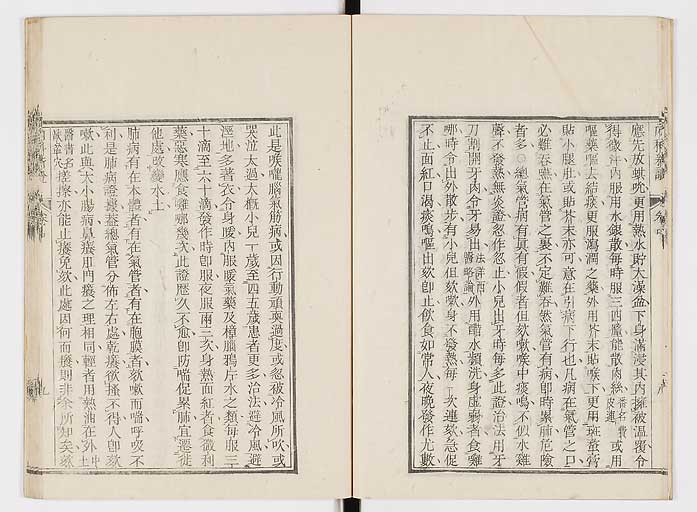 應先放蜞吮更用熱水貯大澡盆下身滿浸其內擁被溫覆令
得微汗內服用水銀散每時服三四釐能散肉絲或用
嘔藥嘔去結痰更服瀉潤之藥外用芥末貼喉下更用斑蝥膏
貼小腿肚或貼芥末亦可意在引病下行也凡病在氣管之口
必難吞嚥在氣管之裏不定難吞嚥氣管有病即時累肺危險
者多○總氣管病有真有假假者但欬嗽喉中痰鳴不似水雞
聲不發熱無炎證忽作忽止小兒出牙時每多此證治法用牙
刀割開牙肉令牙易出外用醋水頻洗身虛弱者食雞
哪時令出外散步有小兒但欬嗽身不發熱每一次連欬急促
不止面紅目濁痰鳴嘔出欬即止飲食如常人夜晚發作尤數
此是喉嚨腦氣筋病或因行動頑耍過度或忽被冷風所吹或
哭泣太過大概小兒一歲至四五歲患者更多治法避冷風避
溼地多著衣令身暖內服暖氣藥及樟腦鴉片水之類每服三
十滴至六十滴發作時即服夜服兩三次身熱而紅者食微利
藥惡寒應食雞哪幾次此證歷久不愈即防喘促累肺宜遷徙
他處改變水土
肺病有在本體者有在氣管者有在胞膜者欬嗽而喘呼吸不
利是肺病證據葢總氣管分佈左右處乾癢欲搔不得人即欬
嗽此與大小腸病鼻癢肛門癢之理相同輕者用熱油在外
搓擦亦能止癢免欬此處因何而癢則非余所知矣欬